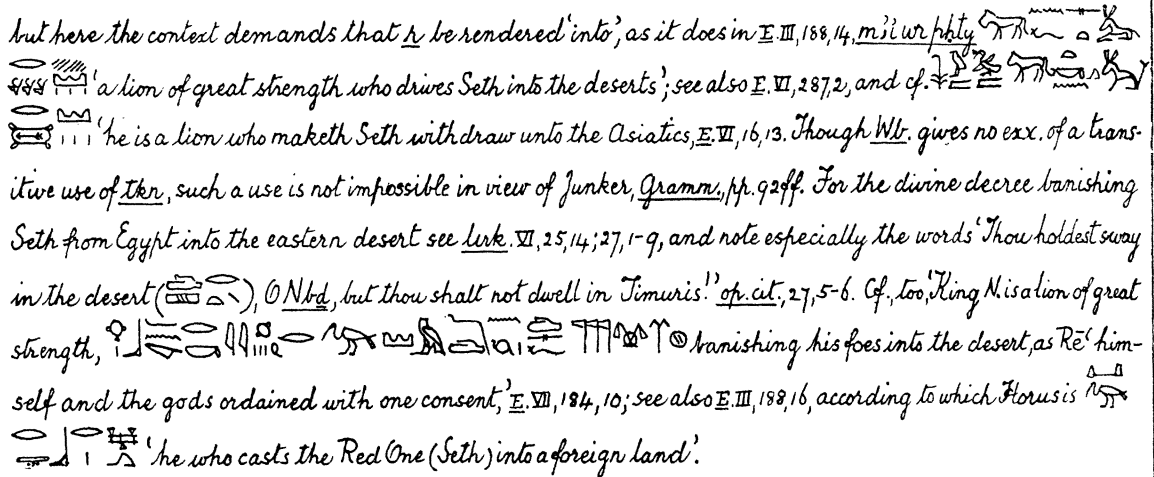 but here the context demands that r be rendered 'into', as it does in E. III, 188, 14, m3i wr phty
'a lion of great strength who drives Seth into the deserts'; see also E. VI, 287, 2, and cf.
'he is a lion who maketh Seth withdraw unto the Asiatics, E. VI, 16, 13. Though Wb. gives no exx. of a trans-
itive use of tkn, such a use is not impossible in view of Junker, Gramm., pp. 92ff. For the divine decree banishing
Seth from Egypt into the eastern desert see Urk. VI, 25, 14; 27, 1-9, and note especially the words 'Thou holdest sway
in the desert ( ), O Nbd, but thou shalt not dwell in Timuris!' op. cit., 27, 5-6. Cf., too, 'King N is a lion of great
strength, banishing his foes into the desert, as Rēʿ him-
self and the gods ordained with one consent,' E. VII, 184, 10; see also E. III, 188, 16, according to which Horus is
'he who casts the Red One (Seth) into a foreign land'.